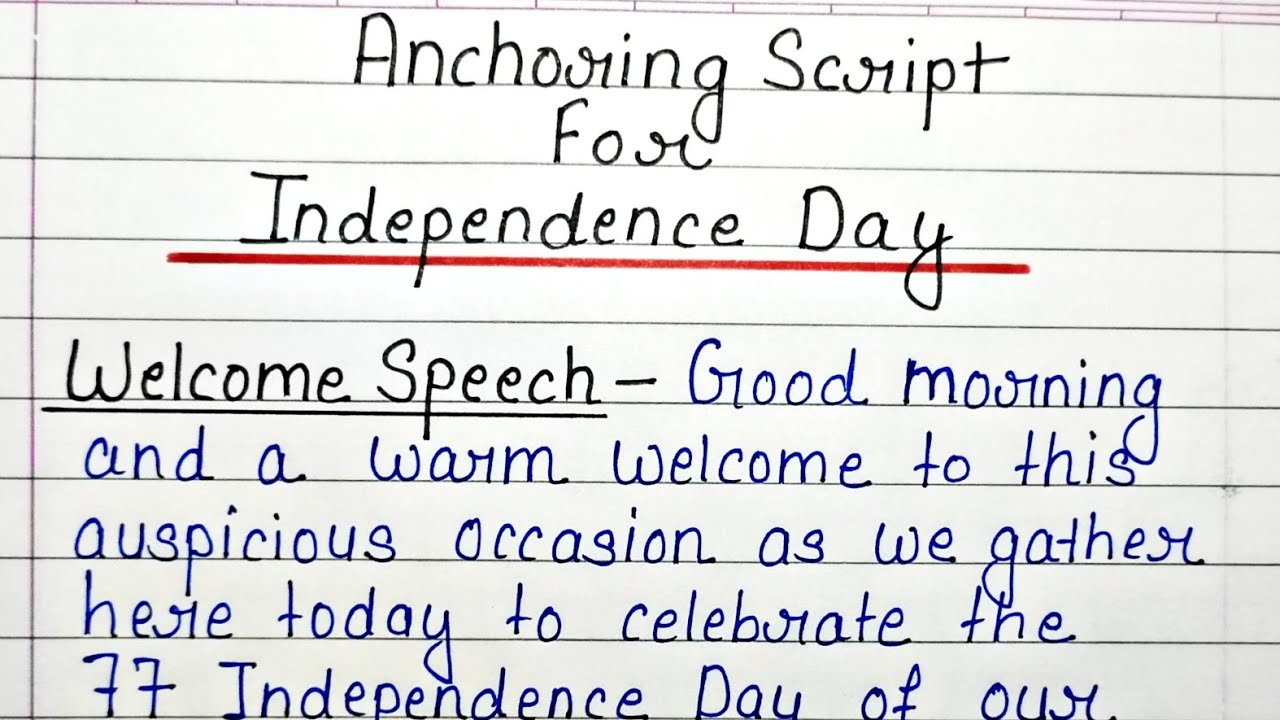 Anchoring Script
For
Independence Day
Welcome Speech – Good morning
and a warm welcome to this
auspicious occasion as we gather
here today to celebrate the
77 Independence Day of our